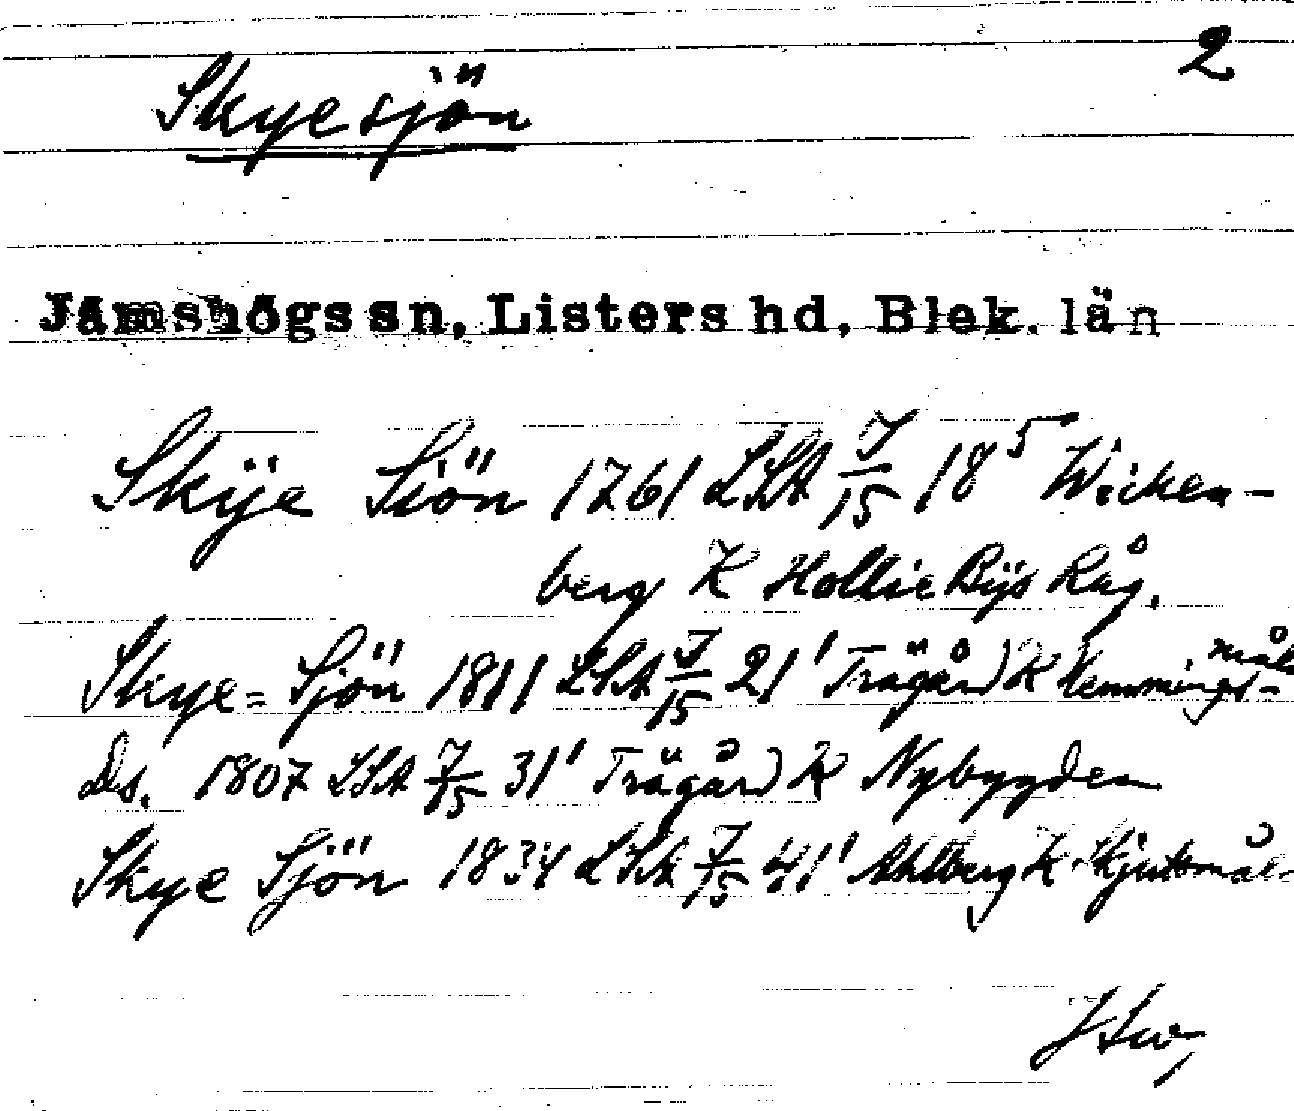 2
Skyesjön
Jämshögs sn, Listers hd, Blek. län
Skÿe Siön 1761 LSA 7/15 18⁵ Wicken-
berg K Hollie Bÿs Råg.
Skye= Sjön 1811 LSA 7/15 21' Trägård K Hemmingsmåla
Ds. 1807 LSA 7/15 31' Trägård K Nybygden
Skye Sjön 1834 LSA 7/15 41' Ahlberg K Skjutsmåla